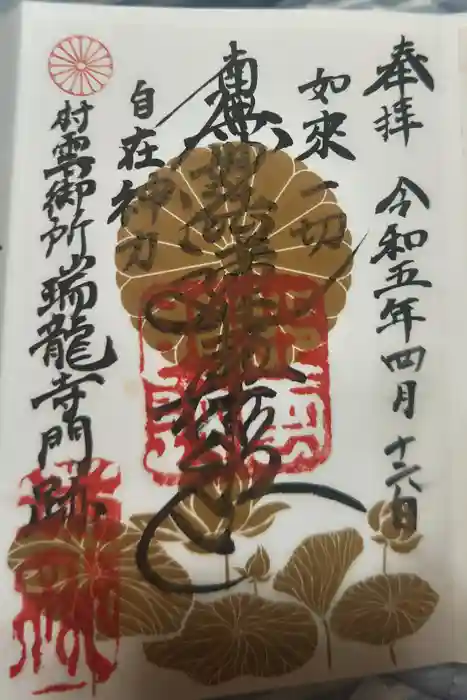 奉拝
令和五年四月十六日
如來一切
南無妙法蓮華経
自在神力
村雲御所瑞龍寺門跡